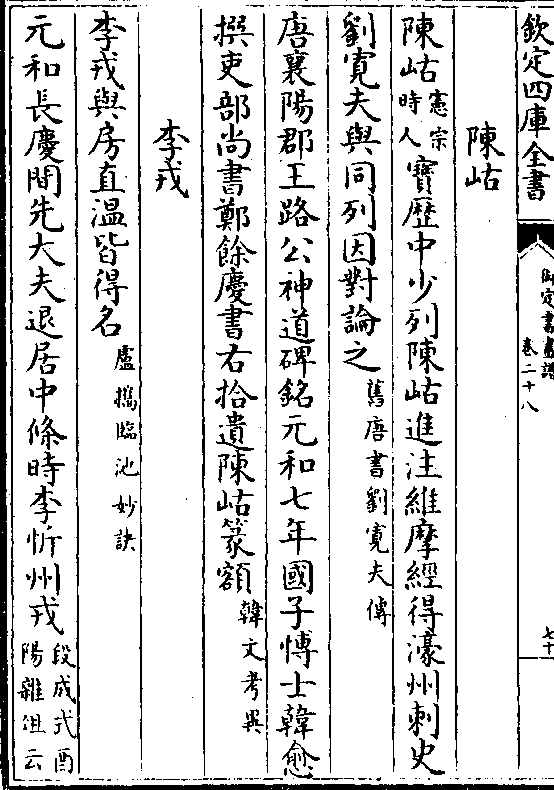 欽定四庫全書
御定書畫譜
卷二十八
七十
陳岵
陳岵憲宗時人寶歷中少列陳岵進注維摩經得濠州刺史
劉寛夫與同列因對論之舊唐書劉寛夫傳
唐襄陽郡王路公神道碑銘元和七年國子博士韓愈
撰吏部尚書鄭餘慶書右拾遺陳岵篆額韓文考異
李戎
李戎與房直溫皆得名盧攜臨池妙訣
元和長慶間先大夫退居中條時李忻州戎段成式酉陽雜俎云